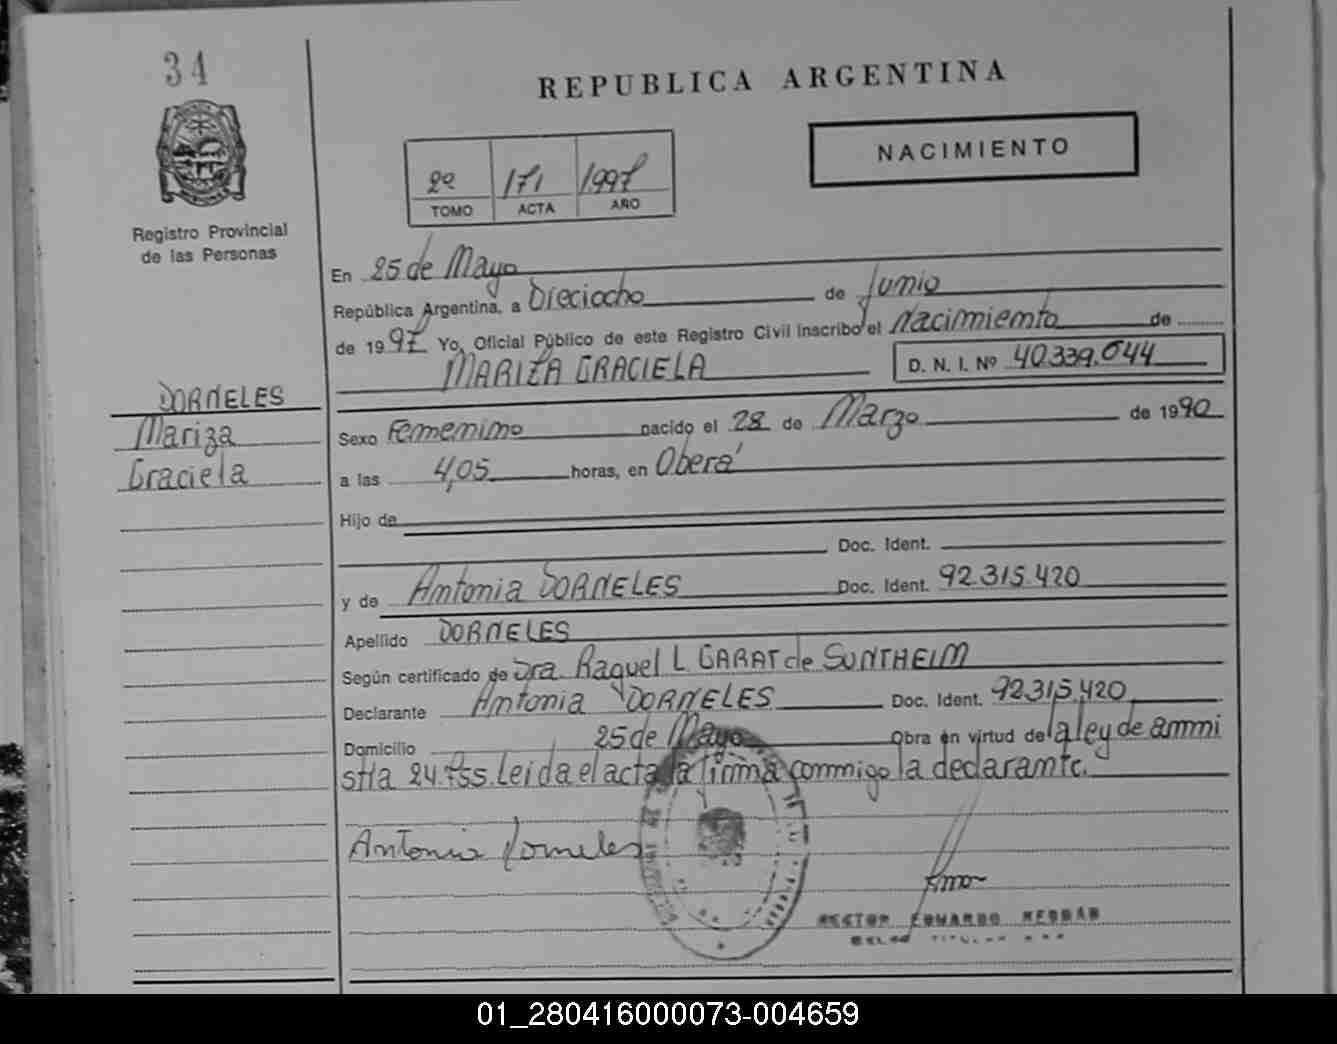 34
REPUBLICA ARGENTINA
NACIMIENTO
2º 171 1997
TOMO ACTA AÑO
Registro Provincial
de las Personas
En 25 de Mayo
República Argentina, a Dieciocho de Junio
de 1997 Yo, Oficial Público de este Registro Civil inscribo el Nacimiento de
MARIZA GRACIELA D. N. I. Nº 40.339.044
DORNELES
Mariza
Graciela
Sexo Femenino nacido el 28 de Marzo de 1990
a las 4,05 horas, en Oberá
Hijo de
Doc. Ident.
y de Antonia DORNELES Doc. Ident. 92.315.420
Apellido DORNELES
Según certificado de Dra. Raquel L GARAT de SUNTHEIM
Declarante Antonia DORNELES Doc. Ident. 92.315.420
Domicilio 25 de Mayo Obra en virtud de la ley de amni
stia 24.755. Leida el acta la firma conmigo la declarante.
Antonia Dorneles
EDUARDO
01_280416000073-004659